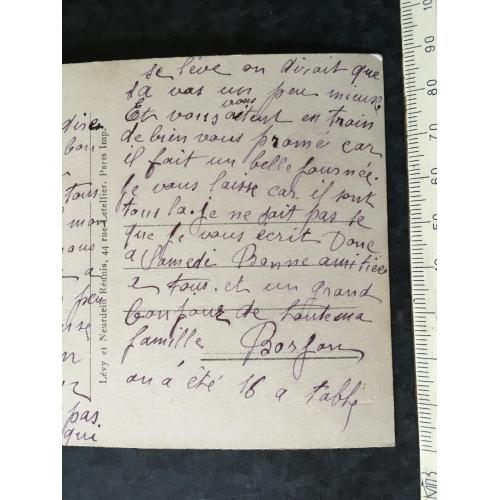 se lève on dirait que
sa vas un peu mieux.
Et vous vous aitent en train
de bien vous promé car
il fait un belle journée.
Je vous laisse car il sont
tous la. je ne sait pas se
que je vous ecrit Donc
a Samedi Bonne amitiées
a tous. et un grand
bonjour de toute ma
famille Bosjon
on a été 16 a table
Lévy et Neurdein Réunis, 44 rue Letellier, Paris Imp.
dire
bon
tous
mon
nous
a
peu
pas.
qui
90
80
70
60
50
40
30
20
10